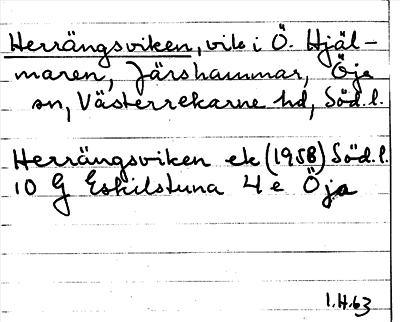 Herrängsviken, vik i Ö. Hjäl-
maren, Järshammar, Öja
sn, Västerrekarne hd, Söd. l.
Herrängsviken ek (1958) Söd. l.
10 G Eskilstuna 4 e Öja
1.H.63